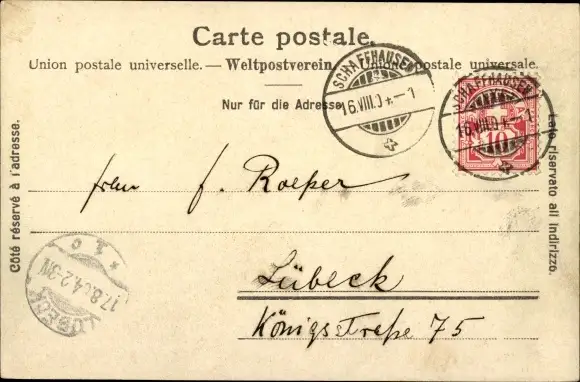 Carte postale.
Union postale universelle. — Weltpostverein. — Unione postale universale.
Nur für die Adresse.
SCHAFFHAUSEN
16.VIII.04.–1
SCHAFFHAUSEN
16.VIII.04.–1
10
Côté réservé à l'adresse.
Lato riservato all indirizzo.
F. Roeper
Lübeck
Königstraße 75
LÜBECK
17.8.04.2-3N